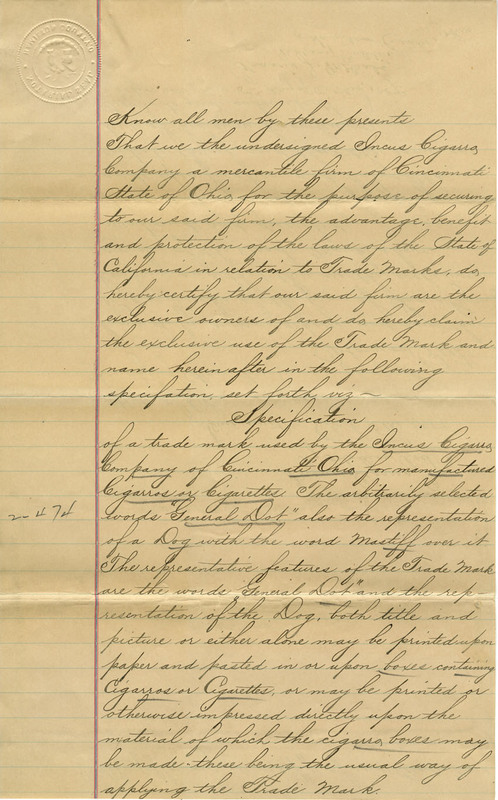 Know all men by these presents
That we the undersigned Incus Cigarro
Company a mercantile firm of Cincinnati
State of Ohio, for the purpose of securing
to our said firm, the advantage, benefit
and protection of the laws of the State of
California in relation to Trade Marks, do,
hereby certify that our said firm are the
exclusive owners of and do, hereby claim
the exclusive use of the Trade Mark and
name hereinafter in the following
specifation, set forth, viz ~
Specification
of a trade mark used by the Incus Cigarro
Company of Cincinnati Ohio, for manufactured
Cigarros or Cigarettes The arbitrarily selected
2-474
words "General Dot" also the representation
of a Dog with the word Mastiff over it
The representative features of the Trade Mark
are the words "General Dot" and the rep
resentation of the Dog, both title and
picture or either alone may be printed upon
paper and pasted in or upon boxes containing
Cigarros or Cigarettes, or may be printed or
otherwise impressed directly upon the
material of which the cigarro boxes may
be made - these being the usual way of
applying the Trade Mark.